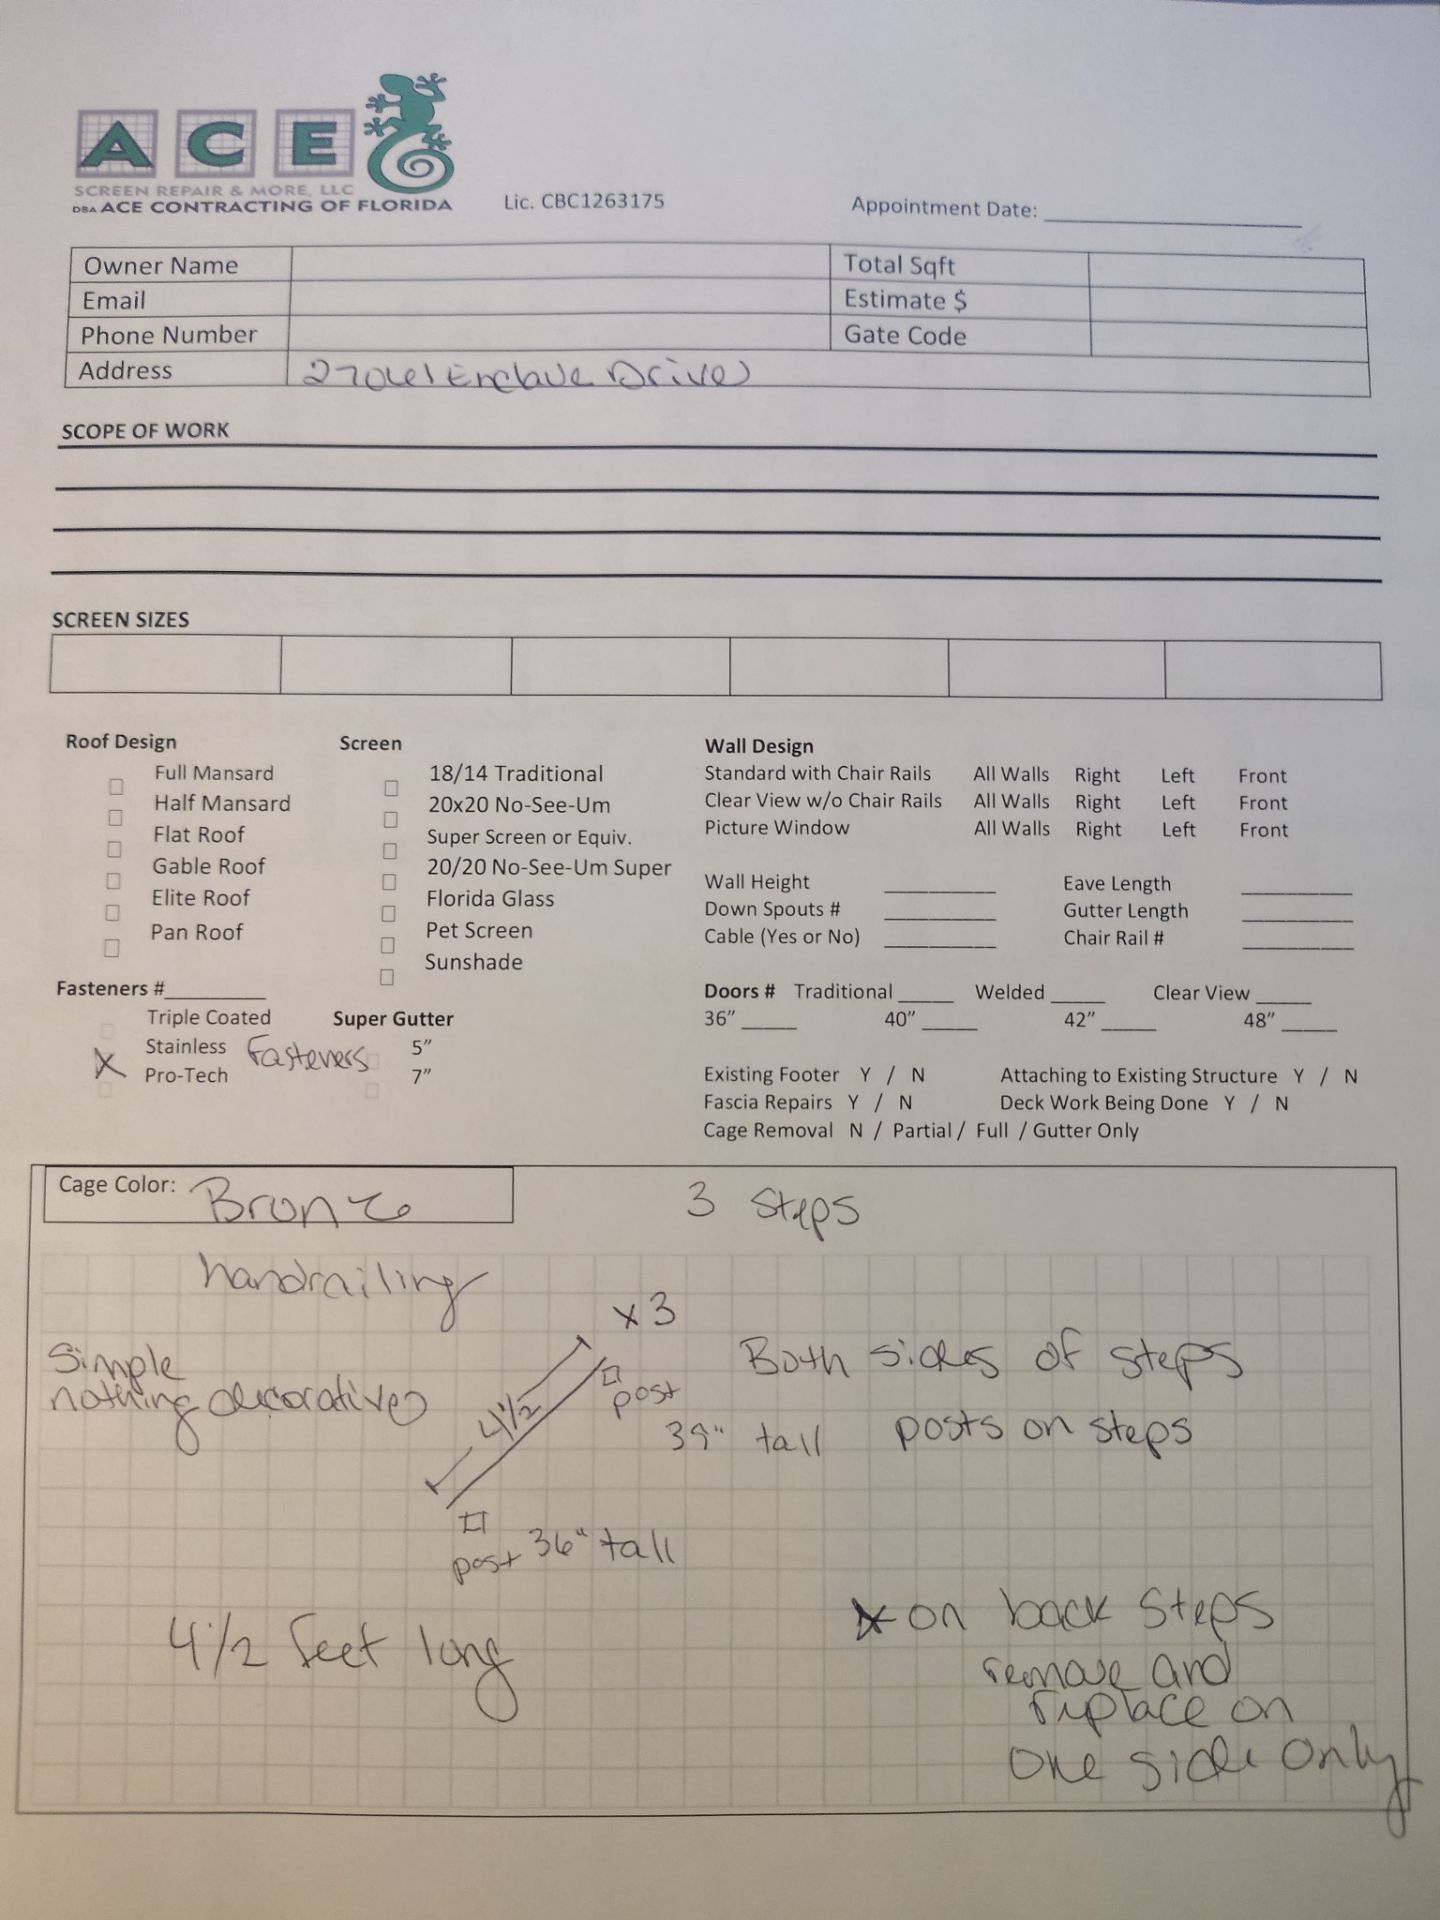 ACE
SCREEN REPAIR & MORE, LLC
DBA ACE CONTRACTING OF FLORIDA
Lic. CBC1263175
Appointment Date: ____________
Owner Name Total Sqft
Email Estimate $
Phone Number Gate Code
Address Enclave Drive
SCOPE OF WORK
SCREEN SIZES
Roof Design
Full Mansard
Half Mansard
Flat Roof
Gable Roof
Elite Roof
Pan Roof
Screen
18/14 Traditional
20x20 No-See-Um
Super Screen or Equiv.
20/20 No-See-Um Super
Florida Glass
Pet Screen
Sunshade
Wall Design
Standard with Chair Rails All Walls Right Left Front
Clear View w/o Chair Rails All Walls Right Left Front
Picture Window All Walls Right Left Front
Wall Height ________ Eave Length ________
Down Spouts # ________ Gutter Length ________
Cable (Yes or No) ________ Chair Rail # ________
Fasteners #________
Triple Coated
Stainless Fasteners
X Pro-Tech
Super Gutter
5”
7”
Doors # Traditional ____ Welded ____ Clear View ____
36” ____ 40” ____ 42” ____ 48” ____
Existing Footer Y / N Attaching to Existing Structure Y / N
Fascia Repairs Y / N Deck Work Being Done Y / N
Cage Removal N / Partial / Full / Gutter Only
Cage Color: Bronze
3 Steps
handrailing
x3
Simple
nothing decorative
4 1/2
post
39" tall
Both sides of steps
posts on steps
post 36" tall
4 1/2 feet long
on back steps
remove and
replace on
one side only